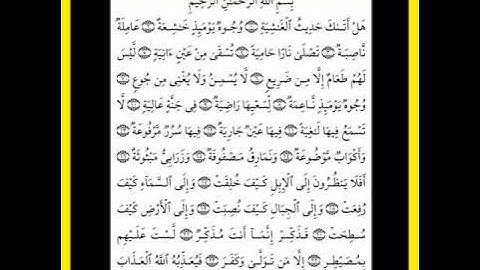 بِسْمِ اللَّهِ الرَّحْمَٰنِ الرَّحِيمِ
هَلْ أَتَىٰكَ حَدِيثُ ٱلْغَٰشِيَةِ ۝ وُجُوهٌ يَوْمَئِذٍ خَٰشِعَةٌ ۝ عَامِلَةٌ
نَّاصِبَةٌ ۝ تَصْلَىٰ نَارًا حَامِيَةً ۝ تُسْقَىٰ مِنْ عَيْنٍ ءَانِيَةٍ ۝ لَّيْسَ
لَهُمْ طَعَامٌ إِلَّا مِن ضَرِيعٍ ۝ لَّا يُسْمِنُ وَلَا يُغْنِى مِن جُوعٍ ۝
وُجُوهٌ يَوْمَئِذٍ نَّاعِمَةٌ ۝ لِّسَعْيِهَا رَاضِيَةٌ ۝ فِى جَنَّةٍ عَالِيَةٍ ۝ لَّا
تَسْمَعُ فِيهَا لَٰغِيَةً ۝ فِيهَا عَيْنٌ جَارِيَةٌ ۝ فِيهَا سُرُرٌ مَّرْفُوعَةٌ ۝
وَأَكْوَابٌ مَّوْضُوعَةٌ ۝ وَنَمَارِقُ مَصْفُوفَةٌ ۝ وَزَرَابِىُّ مَبْثُوثَةٌ ۝
أَفَلَا يَنظُرُونَ إِلَى ٱلْإِبِلِ كَيْفَ خُلِقَتْ ۝ وَإِلَى ٱلسَّمَآءِ كَيْفَ
رُفِعَتْ ۝ وَإِلَى ٱلْجِبَالِ كَيْفَ نُصِبَتْ ۝ وَإِلَى ٱلْأَرْضِ كَيْفَ
سُطِحَتْ ۝ فَذَكِّرْ إِنَّمَآ أَنتَ مُذَكِّرٌ ۝ لَّسْتَ عَلَيْهِم
بِمُصَيْطِرٍ ۝ إِلَّا مَن تَوَلَّىٰ وَكَفَرَ ۝ فَيُعَذِّبُهُ ٱللَّهُ ٱلْعَذَابَ